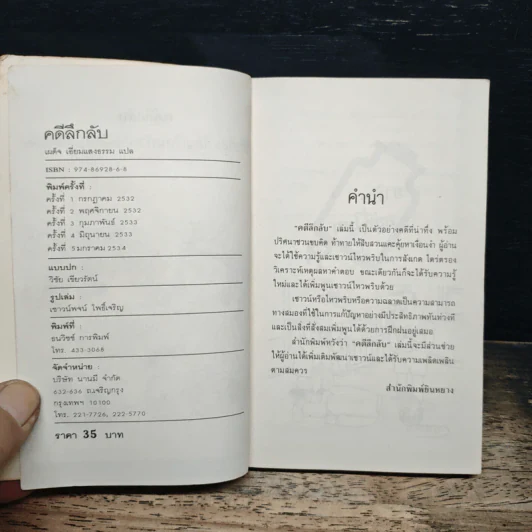 คดีลึกลับ
เผด็จ เอี่ยมแสงธรรม แปล
ISBN : 974-86928-6-8
พิมพ์ครั้งที่ :
ครั้งที่ 1 กรกฎาคม 2532
ครั้งที่ 2 พฤศจิกายน 2532
ครั้งที่ 3 กุมภาพันธ์ 2533
ครั้งที่ 4 มิถุนายน 2533
ครั้งที่ 5 มกราคม 2534
แบบปก :
วิชัย เขียวรัตน์
รูปเล่ม :
เชาวน์พจน์ โพธิ์เจริญ
พิมพ์ที่ :
ธนวิชช์ การพิมพ์
โทร. 433-3068
จัดจำหน่าย :
บริษัท นานมี จำกัด
632-636 ถ.เจริญกรุง
กรุงเทพฯ 10100
โทร. 221-7726, 222-5770
ราคา 35 บาท
คำนำ
"คดีลึกลับ" เล่มนี้ เป็นตัวอย่างคดีที่น่าทึ่ง พร้อม
ปริศนาชวนขบคิด ท้าทายให้สืบสวนแคะคุ้ยหาเงื่อนงำ ผู้อ่าน
จะได้ใช้ความรู้และเชาวน์ไหวพริบในการสังเกต ไตร่ตรอง
วิเคราะห์เหตุผลหาคำตอบ ขณะเดียวกันก็จะได้รับความรู้
ใหม่และได้เพิ่มพูนเชาวน์ไหวพริบด้วย
เชาวน์หรือไหวพริบหรือความฉลาดเป็นความสามารถ
ทางสมองที่ใช้ในการแก้ปัญหาอย่างมีประสิทธิภาพทันท่วงที
และเป็นสิ่งที่สั่งสมเพิ่มพูนได้ด้วยการฝึกฝนอยู่เสมอ
สำนักพิมพ์หวังว่า "คดีลึกลับ" เล่มนี้จะมีส่วนช่วย
ให้ผู้อ่านได้เพิ่มเติมพัฒนาเชาวน์และได้รับความเพลิดเพลิน
ตามสมควร
สำนักพิมพ์ยินหยาง